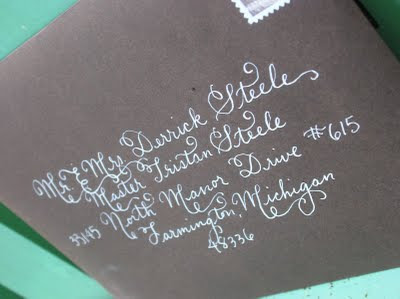 Mr. & Mrs. Derrick Steele
Master Tristan Steele
33145 North Manor Drive #615
Farmington, Michigan
48336